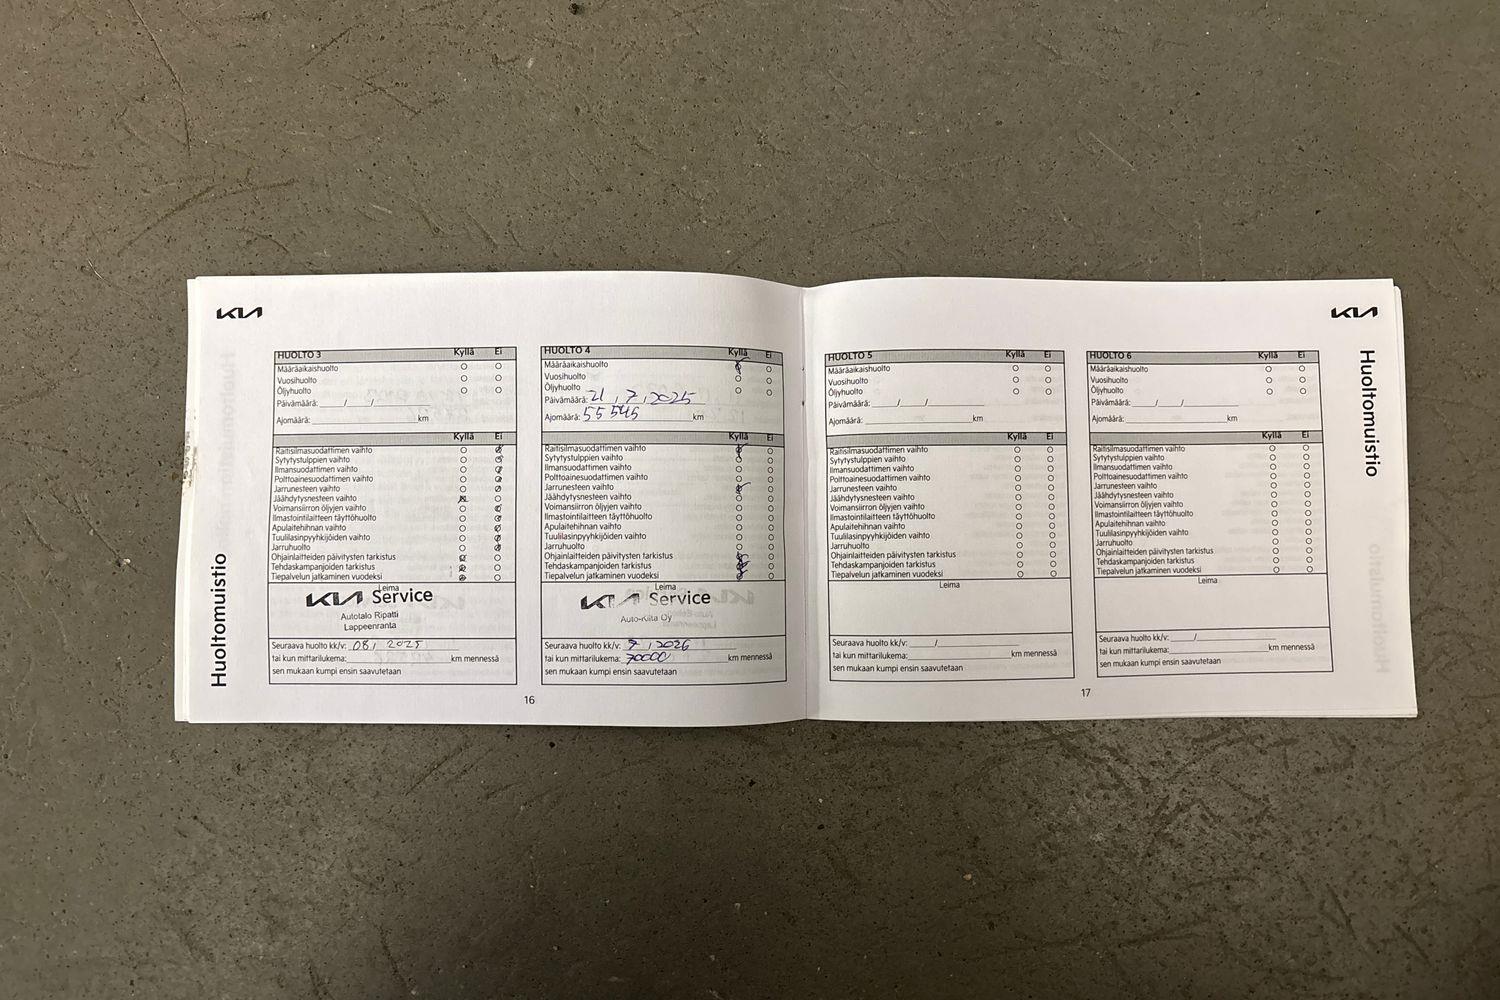 KIA
Huoltomuistio
HUOLTO 3 Kyllä Ei
Määräaikaishuolto
Vuosihuolto
Öljyhuolto
Päivämäärä: ____/____/____
Ajomäärä: ____ km
Kyllä Ei
Raitisilmasuodattimen vaihto
Sytytystulppien vaihto
Ilmansuodattimen vaihto
Polttoainesuodattimen vaihto
Jarrunesteen vaihto
Jäähdytysnesteen vaihto
Voimansiirron öljyjen vaihto
Ilmastointilaitteen täyttöhuolto
Apulaitehihnan vaihto
Tuulilasinpyyhkijöiden vaihto
Jarruhuolto
Ohjainlaitteiden päivitysten tarkistus
Tehdaskampanjoiden tarkistus
Tiepalvelun jatkaminen vuodeksi
Leima
KIA Service
Autotalo Ripatti
Lappeenranta
Seuraava huolto kk/v: 08 / 2025
tai kun mittarilukema: ____ km mennessä
sen mukaan kumpi ensin saavutetaan
HUOLTO 4 Kyllä Ei
Määräaikaishuolto
Vuosihuolto
Öljyhuolto
Päivämäärä: 21 / 7 / 2025
Ajomäärä: 55 545 km
Kyllä Ei
Raitisilmasuodattimen vaihto
Sytytystulppien vaihto
Ilmansuodattimen vaihto
Polttoainesuodattimen vaihto
Jarrunesteen vaihto
Jäähdytysnesteen vaihto
Voimansiirron öljyjen vaihto
Ilmastointilaitteen täyttöhuolto
Apulaitehihnan vaihto
Tuulilasinpyyhkijöiden vaihto
Jarruhuolto
Ohjainlaitteiden päivitysten tarkistus
Tehdaskampanjoiden tarkistus
Tiepalvelun jatkaminen vuodeksi
Leima
KIA Service
Auto-Kilta Oy
Seuraava huolto kk/v: 7 / 2026
tai kun mittarilukema: 70000 km mennessä
sen mukaan kumpi ensin saavutetaan
16
HUOLTO 5 Kyllä Ei
Määräaikaishuolto
Vuosihuolto
Öljyhuolto
Päivämäärä: ____/____/____
Ajomäärä: ____ km
Kyllä Ei
Raitisilmasuodattimen vaihto
Sytytystulppien vaihto
Ilmansuodattimen vaihto
Polttoainesuodattimen vaihto
Jarrunesteen vaihto
Jäähdytysnesteen vaihto
Voimansiirron öljyjen vaihto
Ilmastointilaitteen täyttöhuolto
Apulaitehihnan vaihto
Tuulilasinpyyhkijöiden vaihto
Jarruhuolto
Ohjainlaitteiden päivitysten tarkistus
Tehdaskampanjoiden tarkistus
Tiepalvelun jatkaminen vuodeksi
Leima
Seuraava huolto kk/v: ____/____
tai kun mittarilukema: ____ km mennessä
sen mukaan kumpi ensin saavutetaan
HUOLTO 6 Kyllä Ei
Määräaikaishuolto
Vuosihuolto
Öljyhuolto
Päivämäärä: ____/____/____
Ajomäärä: ____ km
Kyllä Ei
Raitisilmasuodattimen vaihto
Sytytystulppien vaihto
Ilmansuodattimen vaihto
Polttoainesuodattimen vaihto
Jarrunesteen vaihto
Jäähdytysnesteen vaihto
Voimansiirron öljyjen vaihto
Ilmastointilaitteen täyttöhuolto
Apulaitehihnan vaihto
Tuulilasinpyyhkijöiden vaihto
Jarruhuolto
Ohjainlaitteiden päivitysten tarkistus
Tehdaskampanjoiden tarkistus
Tiepalvelun jatkaminen vuodeksi
Leima
Seuraava huolto kk/v: ____/____
tai kun mittarilukema: ____ km mennessä
sen mukaan kumpi ensin saavutetaan
17
KIA
Huoltomuistio